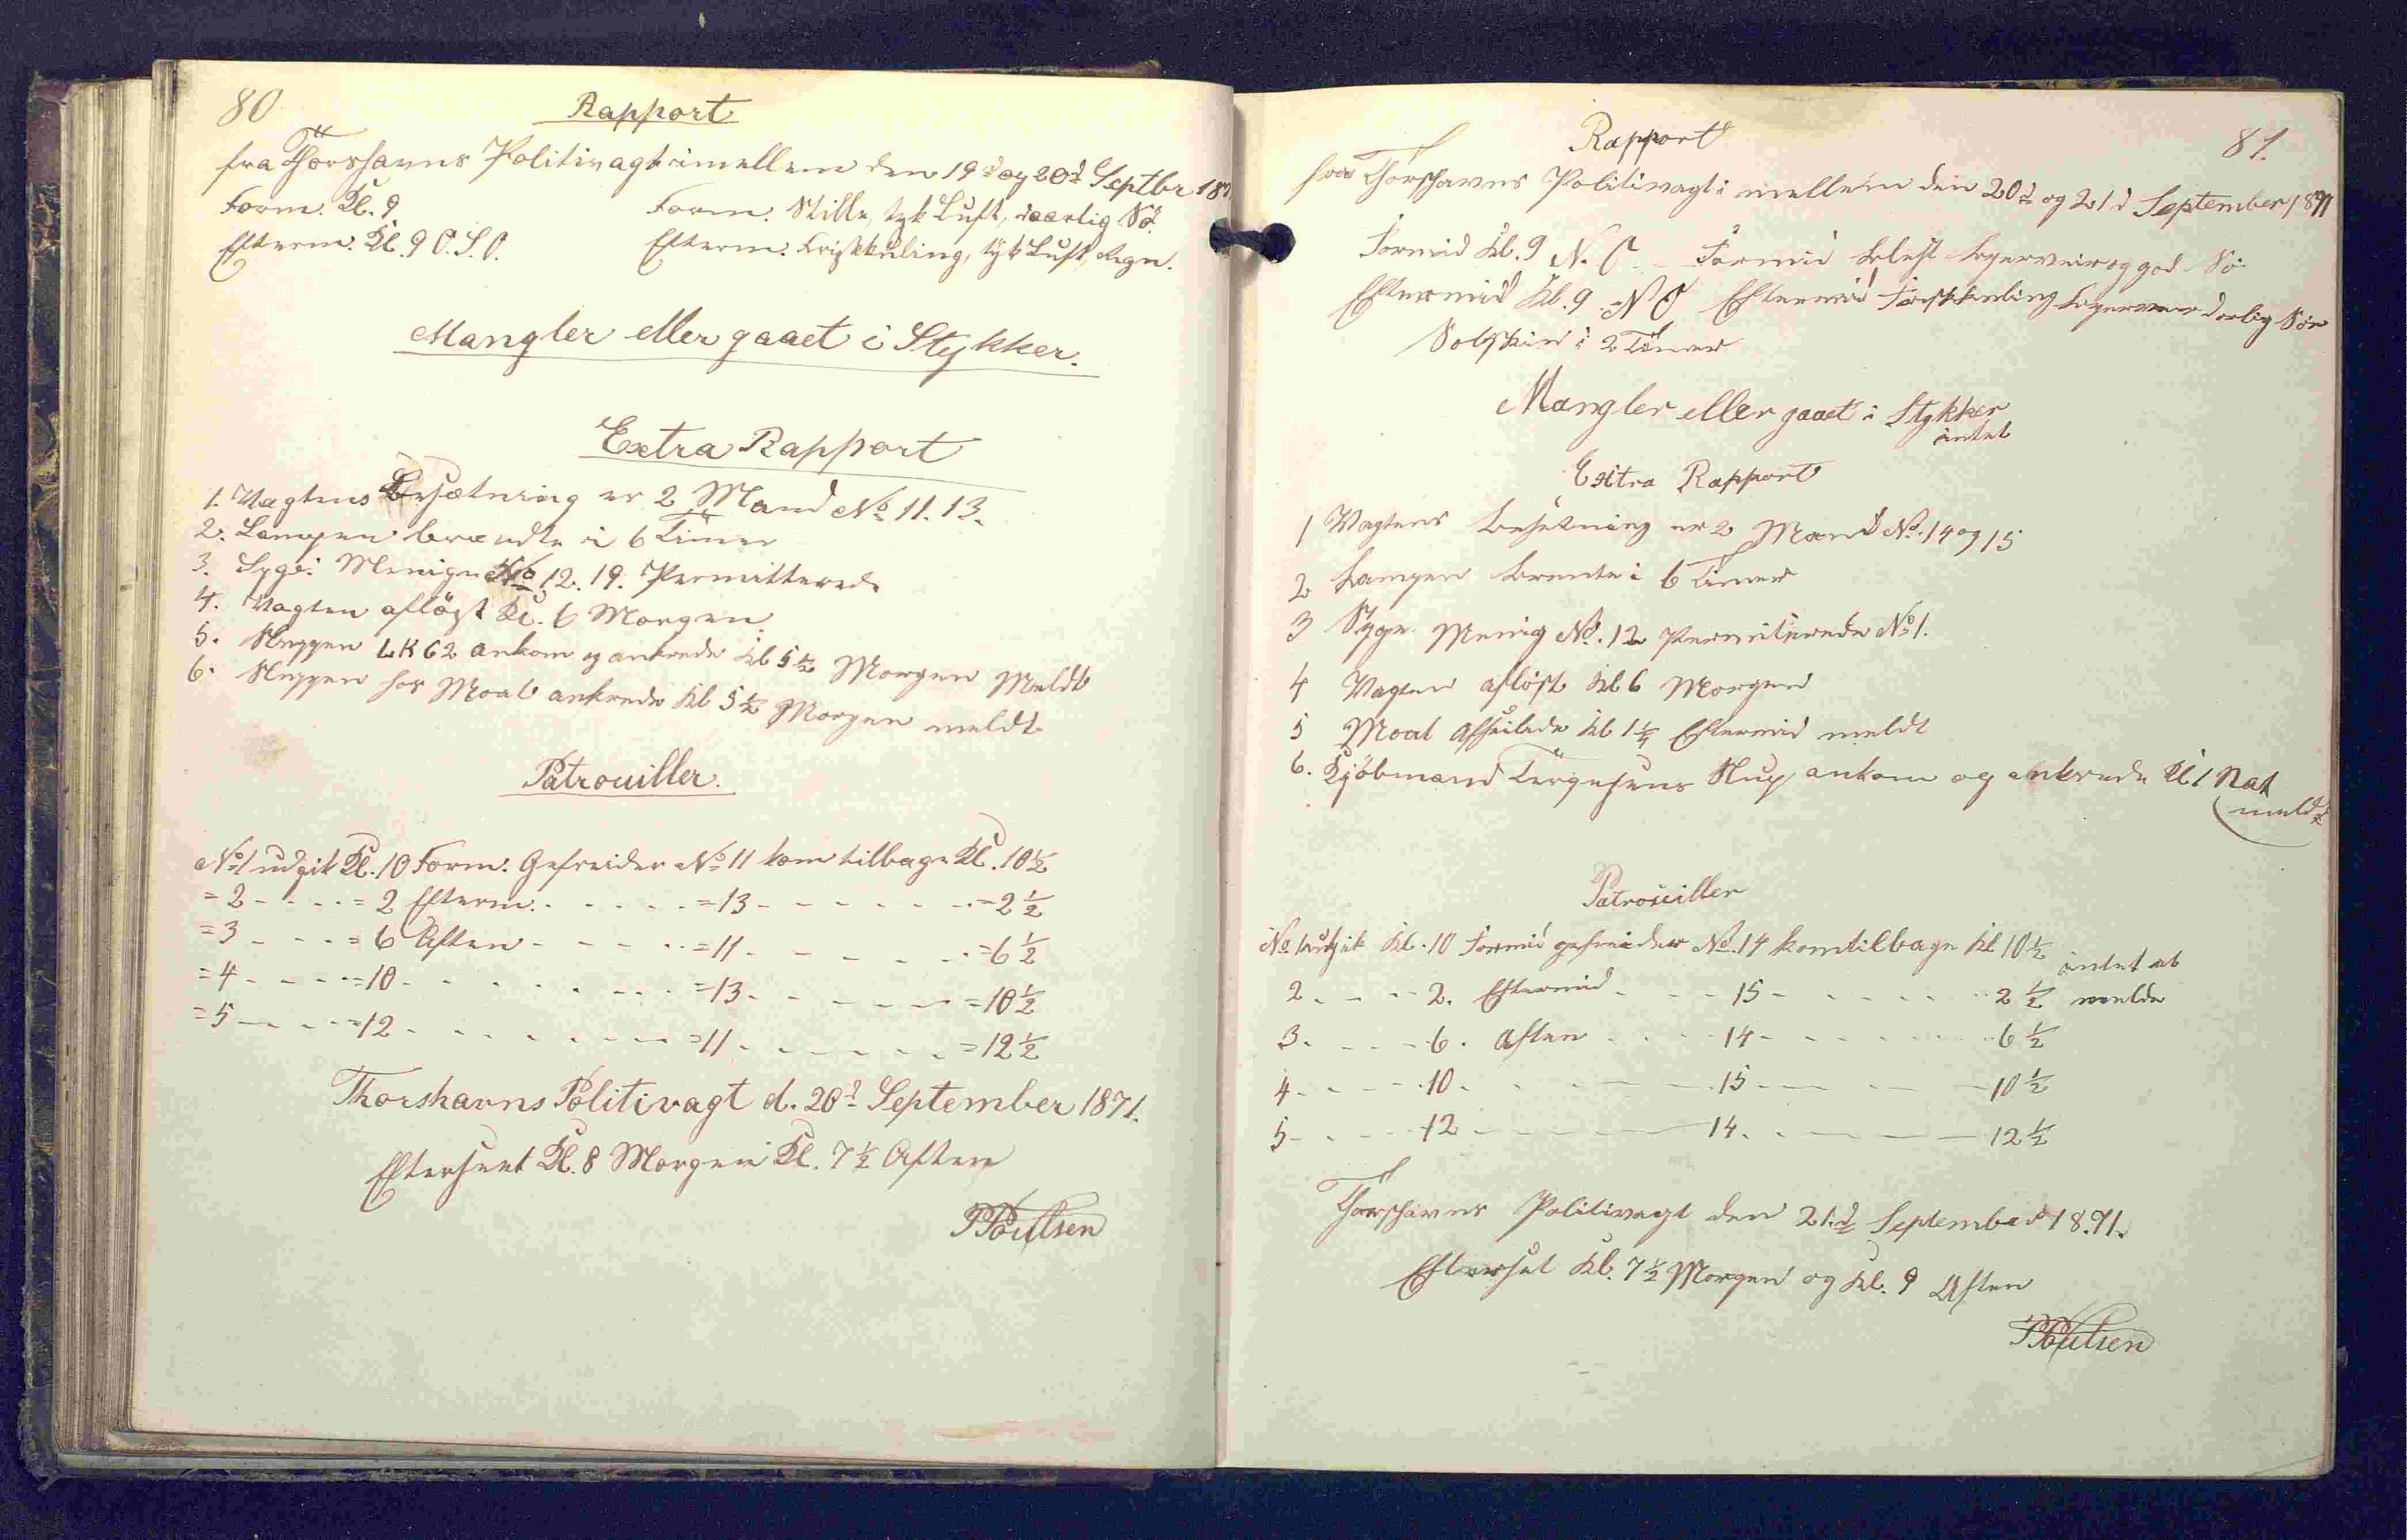 80
Rapport
fra Thorshavns Politivagt imellem den 19d og 20d Septbr 187
Form. Kl. 9
Form. Stille, tyk Luft, daarlig Sö.
Efterm. Kl. 9 O.S.O.
Efterm. Friskkuling, tyk Luft, Regn.
Mangler eller gaaet i Stykker.
Extra Rapport
1. Vagtens Besætning er 2 Mand No 11. 13.
2. Lampen brændte i 6 Timer
3. Syge: Menige No 12. 19. Permitterede
4. Vagten aflöst Kl. 6 Morgen
5. Sluppen LK 62 ankom og ankrede Kl 5½ Morgen Meldt
6. Sluppen for Moat ankrede Kl 5½ Morgen meldt
Patrouiller.
No 1 udgik Kl. 10 Form. Gefreider No 11 kom tilbage Kl. 10½
= 2 - - - - = 2 Efterm. - - - - - = 13 - - - - - - - = 2½
= 3 - - - = 6 Aften - - - - - = 11 - - - - - - = 6½
= 4 - - - - = 10 - - - - - - - - = 13 - - - - - - = 10½
= 5 - - - - = 12 - - - - - - - - = 11 - - - - - - = 12½
Thorshavns Politivagt d. 20d September 1871.
Efterseet Kl. 8 Morgen Kl. 7½ Aften
PPoulsen
81.
Rapport
fra Thorshavns Politivagt i mellem den 20d og 21d September 1871
Formid Kl. 9 N. O - Formid blest Lagerveir og god Sö
Eftermid Kl. 9 - NO Eftermid Friskkuling Lagerveir dorlig Sö
Solskin i 2 Timer
Mangler eller gaaet i Stykker
intet
Extra Rapport
1 Vagtens besetning er 2 Mand No. 14 og 15
2 Lampen brente i 6 Timer
3 Syge Menig No. 12 Permiterede No 1.
4 Vagten aflöst Kl 6 Morgen
5 Moat afseilede Kl 1¼ Eftermid meldt
6. Kjöbmand Törgesens Slup ankom og ankrede Kl 1 Nat
meldt
Patrouiller
No 1 udgik Kl. 10 Formid gefreider No. 14 kom tilbage Kl 10½ intet at
2 - - - - 2. Eftermid - - - 15 - - - - - - - 2½ melde
3. - - - - 6. Aften - - - - 14 - - - - - - - 6½
4 - - - - 10. - - - - - 15 - - - - - 10½
5 - - - - 12 - - - - - 14. - - - - - 12½
Thorshavns Politivagt den 21.d September 1871.
Efterset Kl. 7½ Morgen og Kl. 9 Aften
PPoulsen